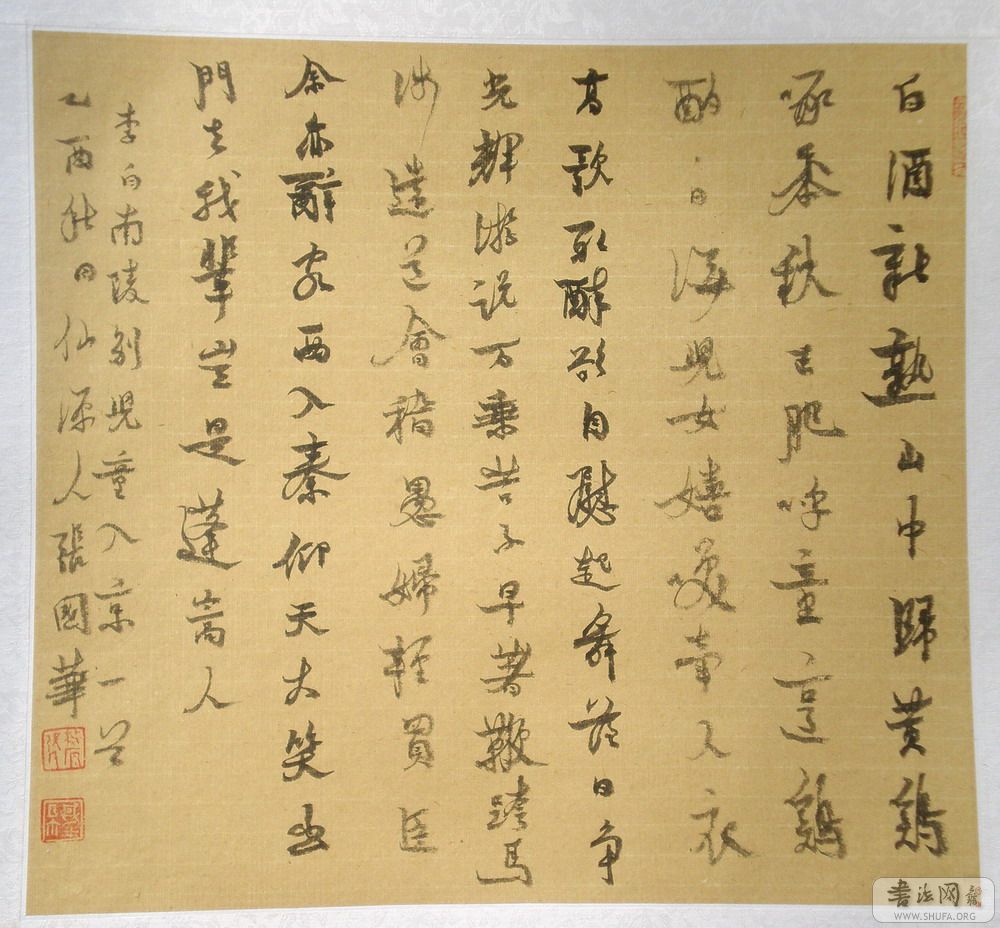 白酒新熟山中歸黄鷄
啄黍秋正肥呼童亨鷄
酌白酒兒女嬉笑牽人衣
高歌取醉欲自慰起舞落日争
光輝游説万乘苦不早著鞭跨馬
涉遠道會稽愚婦輕買臣
余亦辭家西入秦仰天大笑出
門去我輩豈是蓬蒿人
李白南陵别兒童入京一首
乙酉秋日仙源人張國華
書法网
WWW.SHUFA.ORG